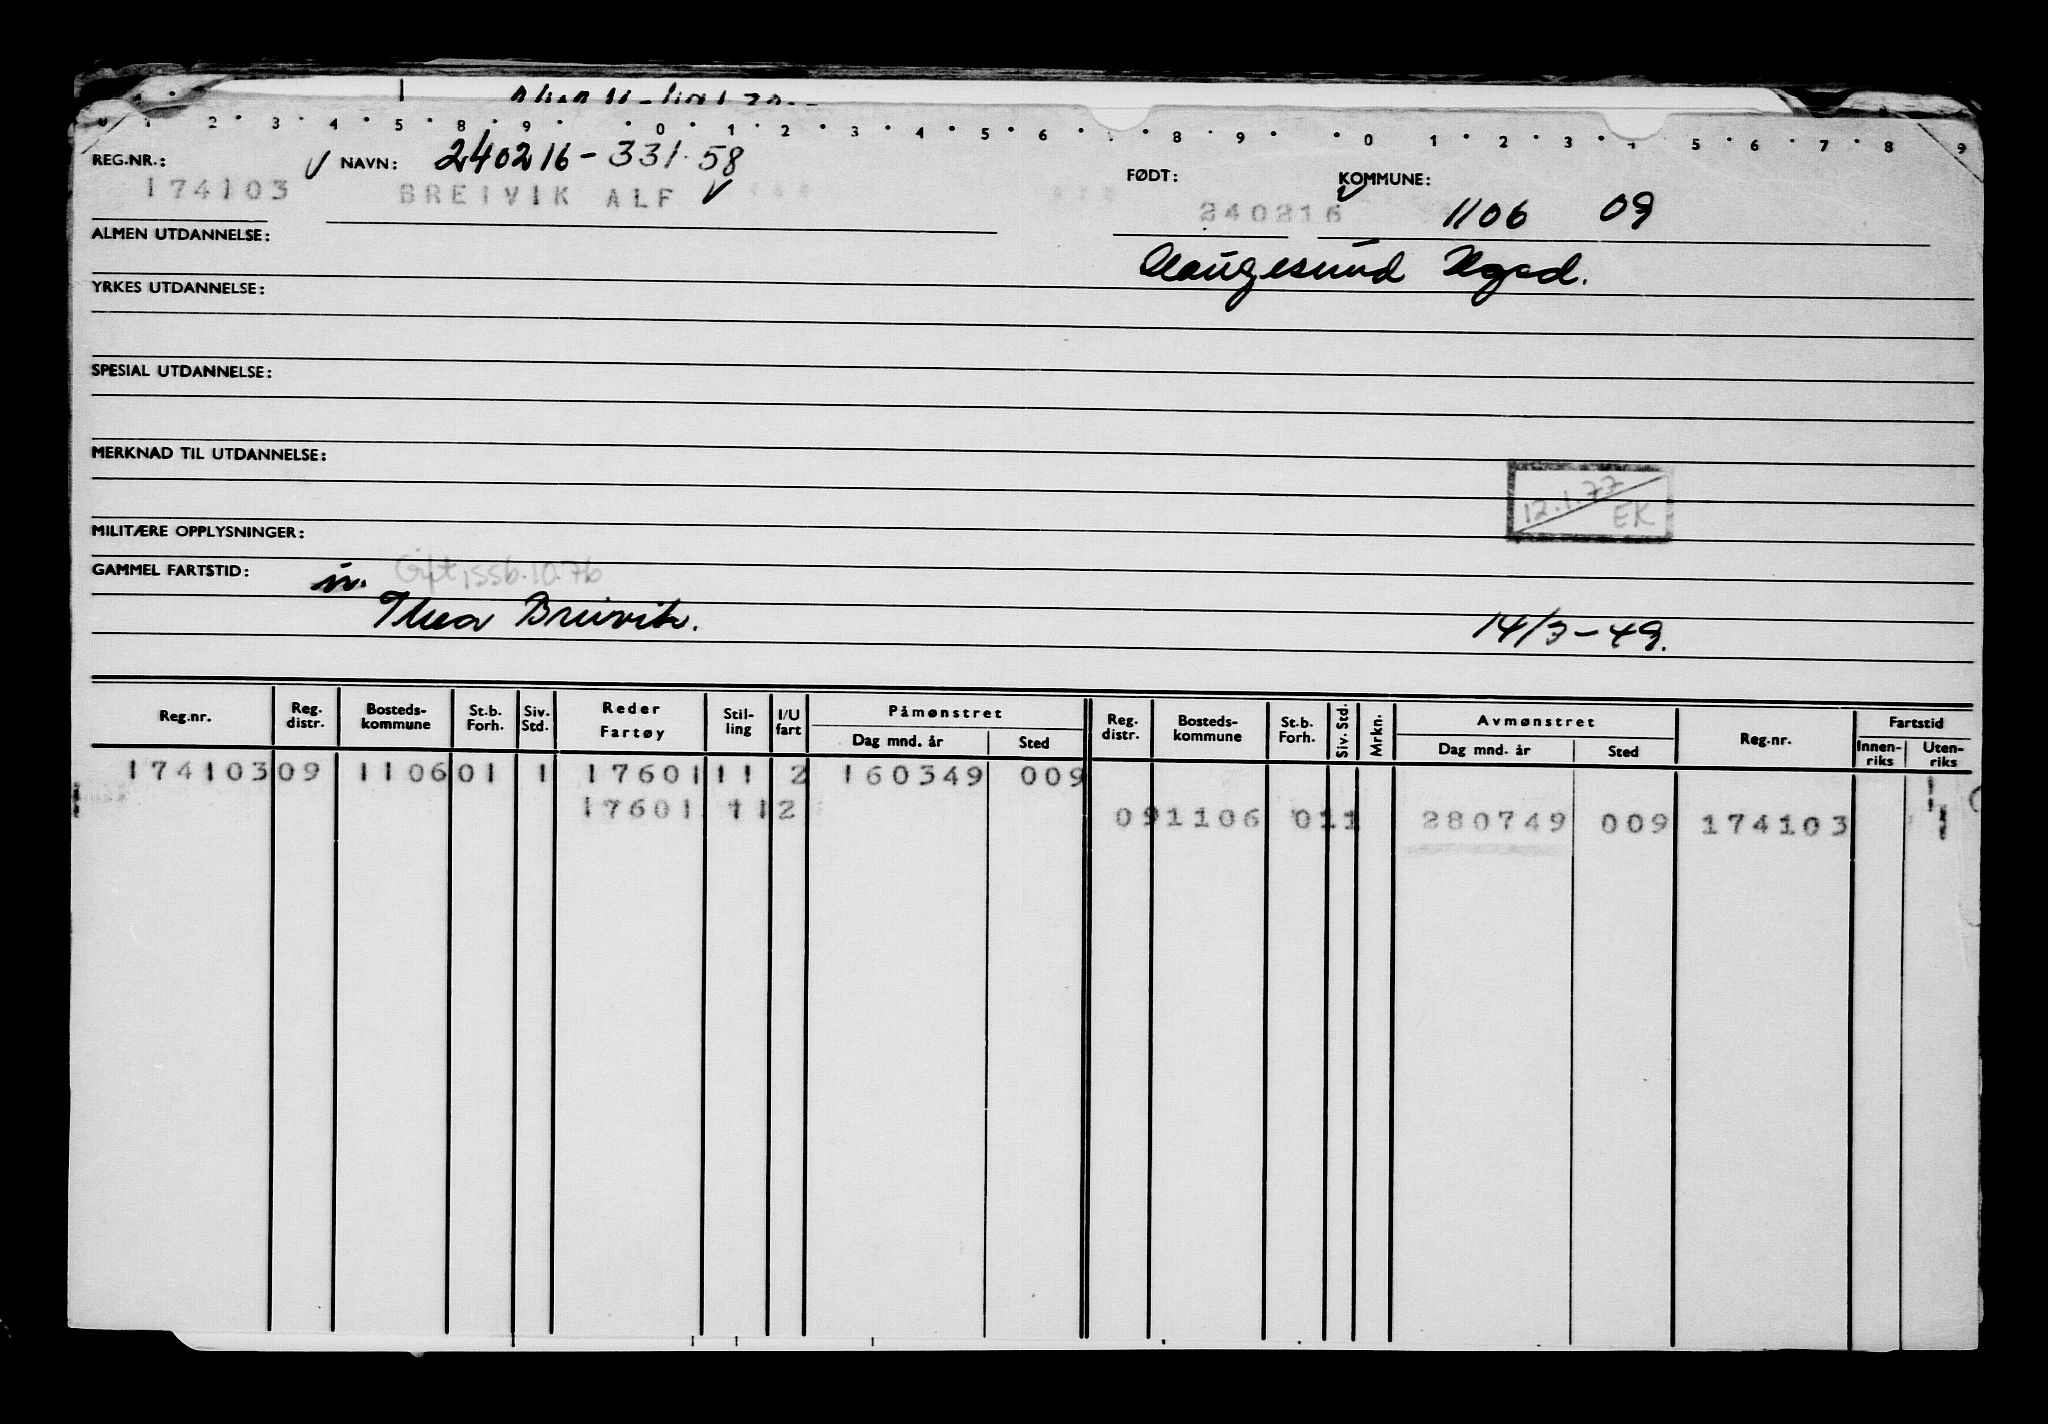 1 2 3 4 5 8 9 0 1 2 3 4 5 6 8 9 0 1 2 3 4 5 6 7 8 9
REG.NR.: NAVN: 240216-331.58 FØDT: KOMMUNE:
174103 BREIVIK ALF 240216 1106 09
ALMEN UTDANNELSE: Haugesund
YRKES UTDANNELSE:
SPESIAL UTDANNELSE:
MERKNAD TIL UTDANNELSE:
12.1.77 EK
MILITÆRE OPPLYSNINGER:
GAMMEL FARTSTID: Gift,
Thea Breivik. 14/3-49.
Reg.nr. Reg. distr. Bosteds- kommune St.b. Forh. Siv. Std. Reder Fartøy Stil- ling I/U fart Påmønstret Dag mnd. år Sted Reg. distr. Bosteds- kommune St.b. Forh. Siv. Std. Mrkn. Avmønstret Dag mnd. år Sted Reg.nr. Fartstid Innen- riks Uten- riks
174103 09 1106 01 1 17601 11 2 160349 009
17601 11 2 09 1106 01 1 280749 009 174103